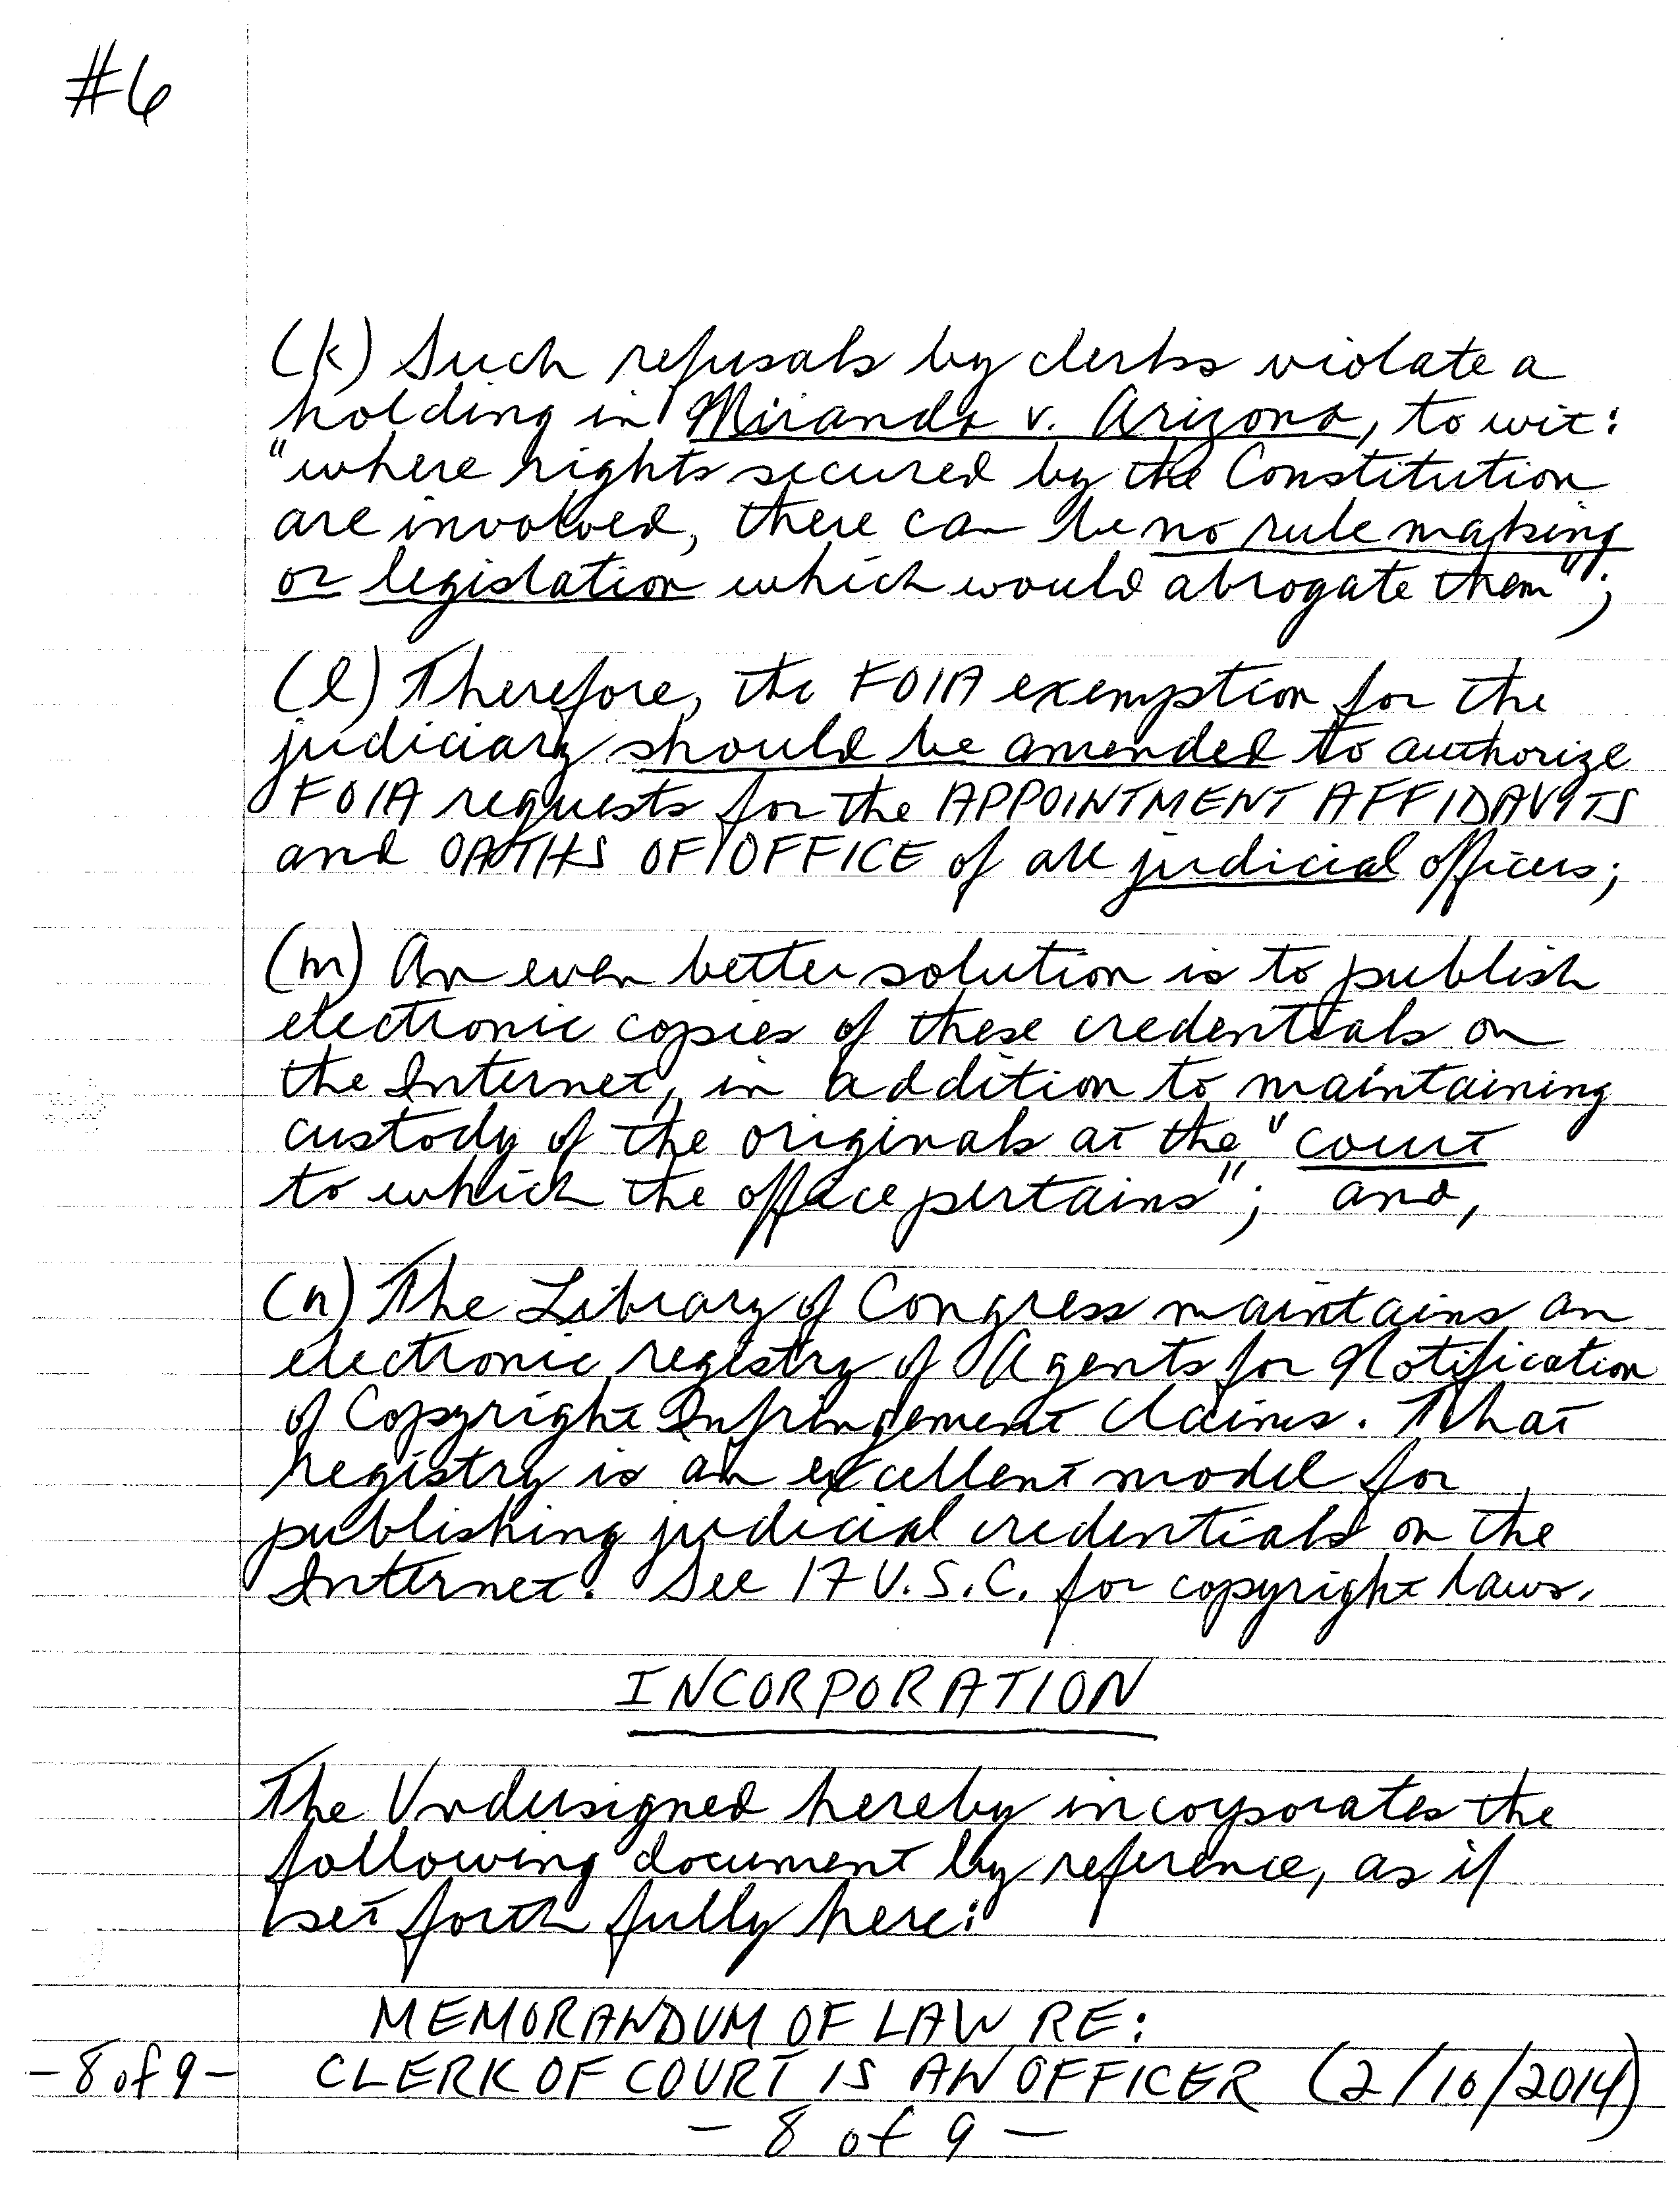 #6
(k) Such refusals by clerks violate a
holding in Miranda v. Arizona, to wit:
"where rights secured by the Constitution
are involved, there can be no rule making
or legislation which would abrogate them";
(l) Therefore, the FOIA exemption for the
judiciary should be amended to authorize
FOIA requests for the APPOINTMENT AFFIDAVITS
and OATHS OF OFFICE of all judicial officers;
(m) An even better solution is to publish
electronic copies of these credentials on
the Internet, in addition to maintaining
custody of the originals at the "court
to which the office pertains"; and,
(n) The Library of Congress maintains an
electronic registry of Agents for Notification
of Copyright Infringement Claims. That
registry is an excellent model for
publishing judicial credentials on the
Internet. See 17 U.S.C. for copyright laws.
INCORPORATION
The Undersigned hereby incorporates the
following document by reference, as if
set forth fully here:
MEMORANDUM OF LAW RE:
- 8 of 9 - CLERK OF COURT IS AN OFFICER (2/10/2014)
- 8 of 9 -